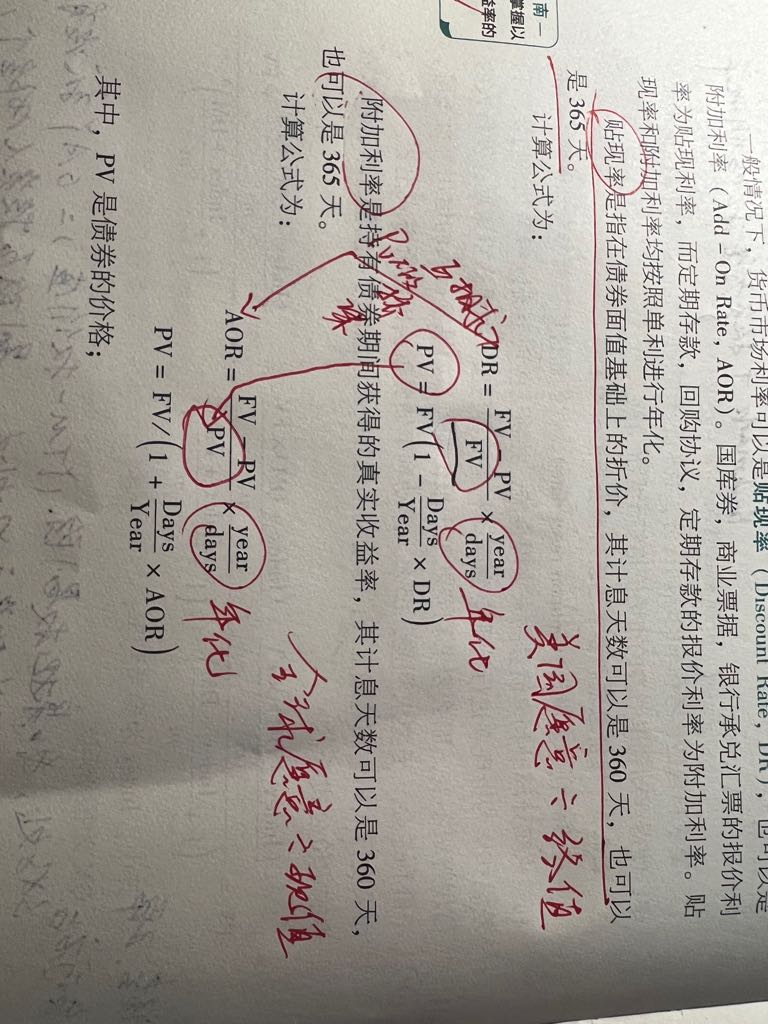 南一
掌握以
益率的
一般情况下，货币市场利率可以是贴现率（Discount Rate, DR），也可以是
附加利率（Add-On Rate, AOR）。国库券，商业票据，银行承兑汇票的报价利
率为贴现利率，而定期存款，回购协议，定期存款的报价利率为附加利率。贴
现率和附加利率均按照单利进行年化。
贴现率是指在债券面值基础上的折价，其计息天数可以是 360 天，也可以
是 365 天。
计算公式为：
美国愿意÷终值
DR = (FV - PV)/FV × year/days
年化
PV = FV(1 - Days/Year × DR)
附加利率是持有债券期间获得的真实收益率，其计息天数可以是 360 天，
也可以是 365 天。
计算公式为：
全球愿意÷现值
AOR = (FV - PV)/PV × year/days
年化
PV = FV/(1 + Days/Year × AOR)
其中，PV 是债券的价格；